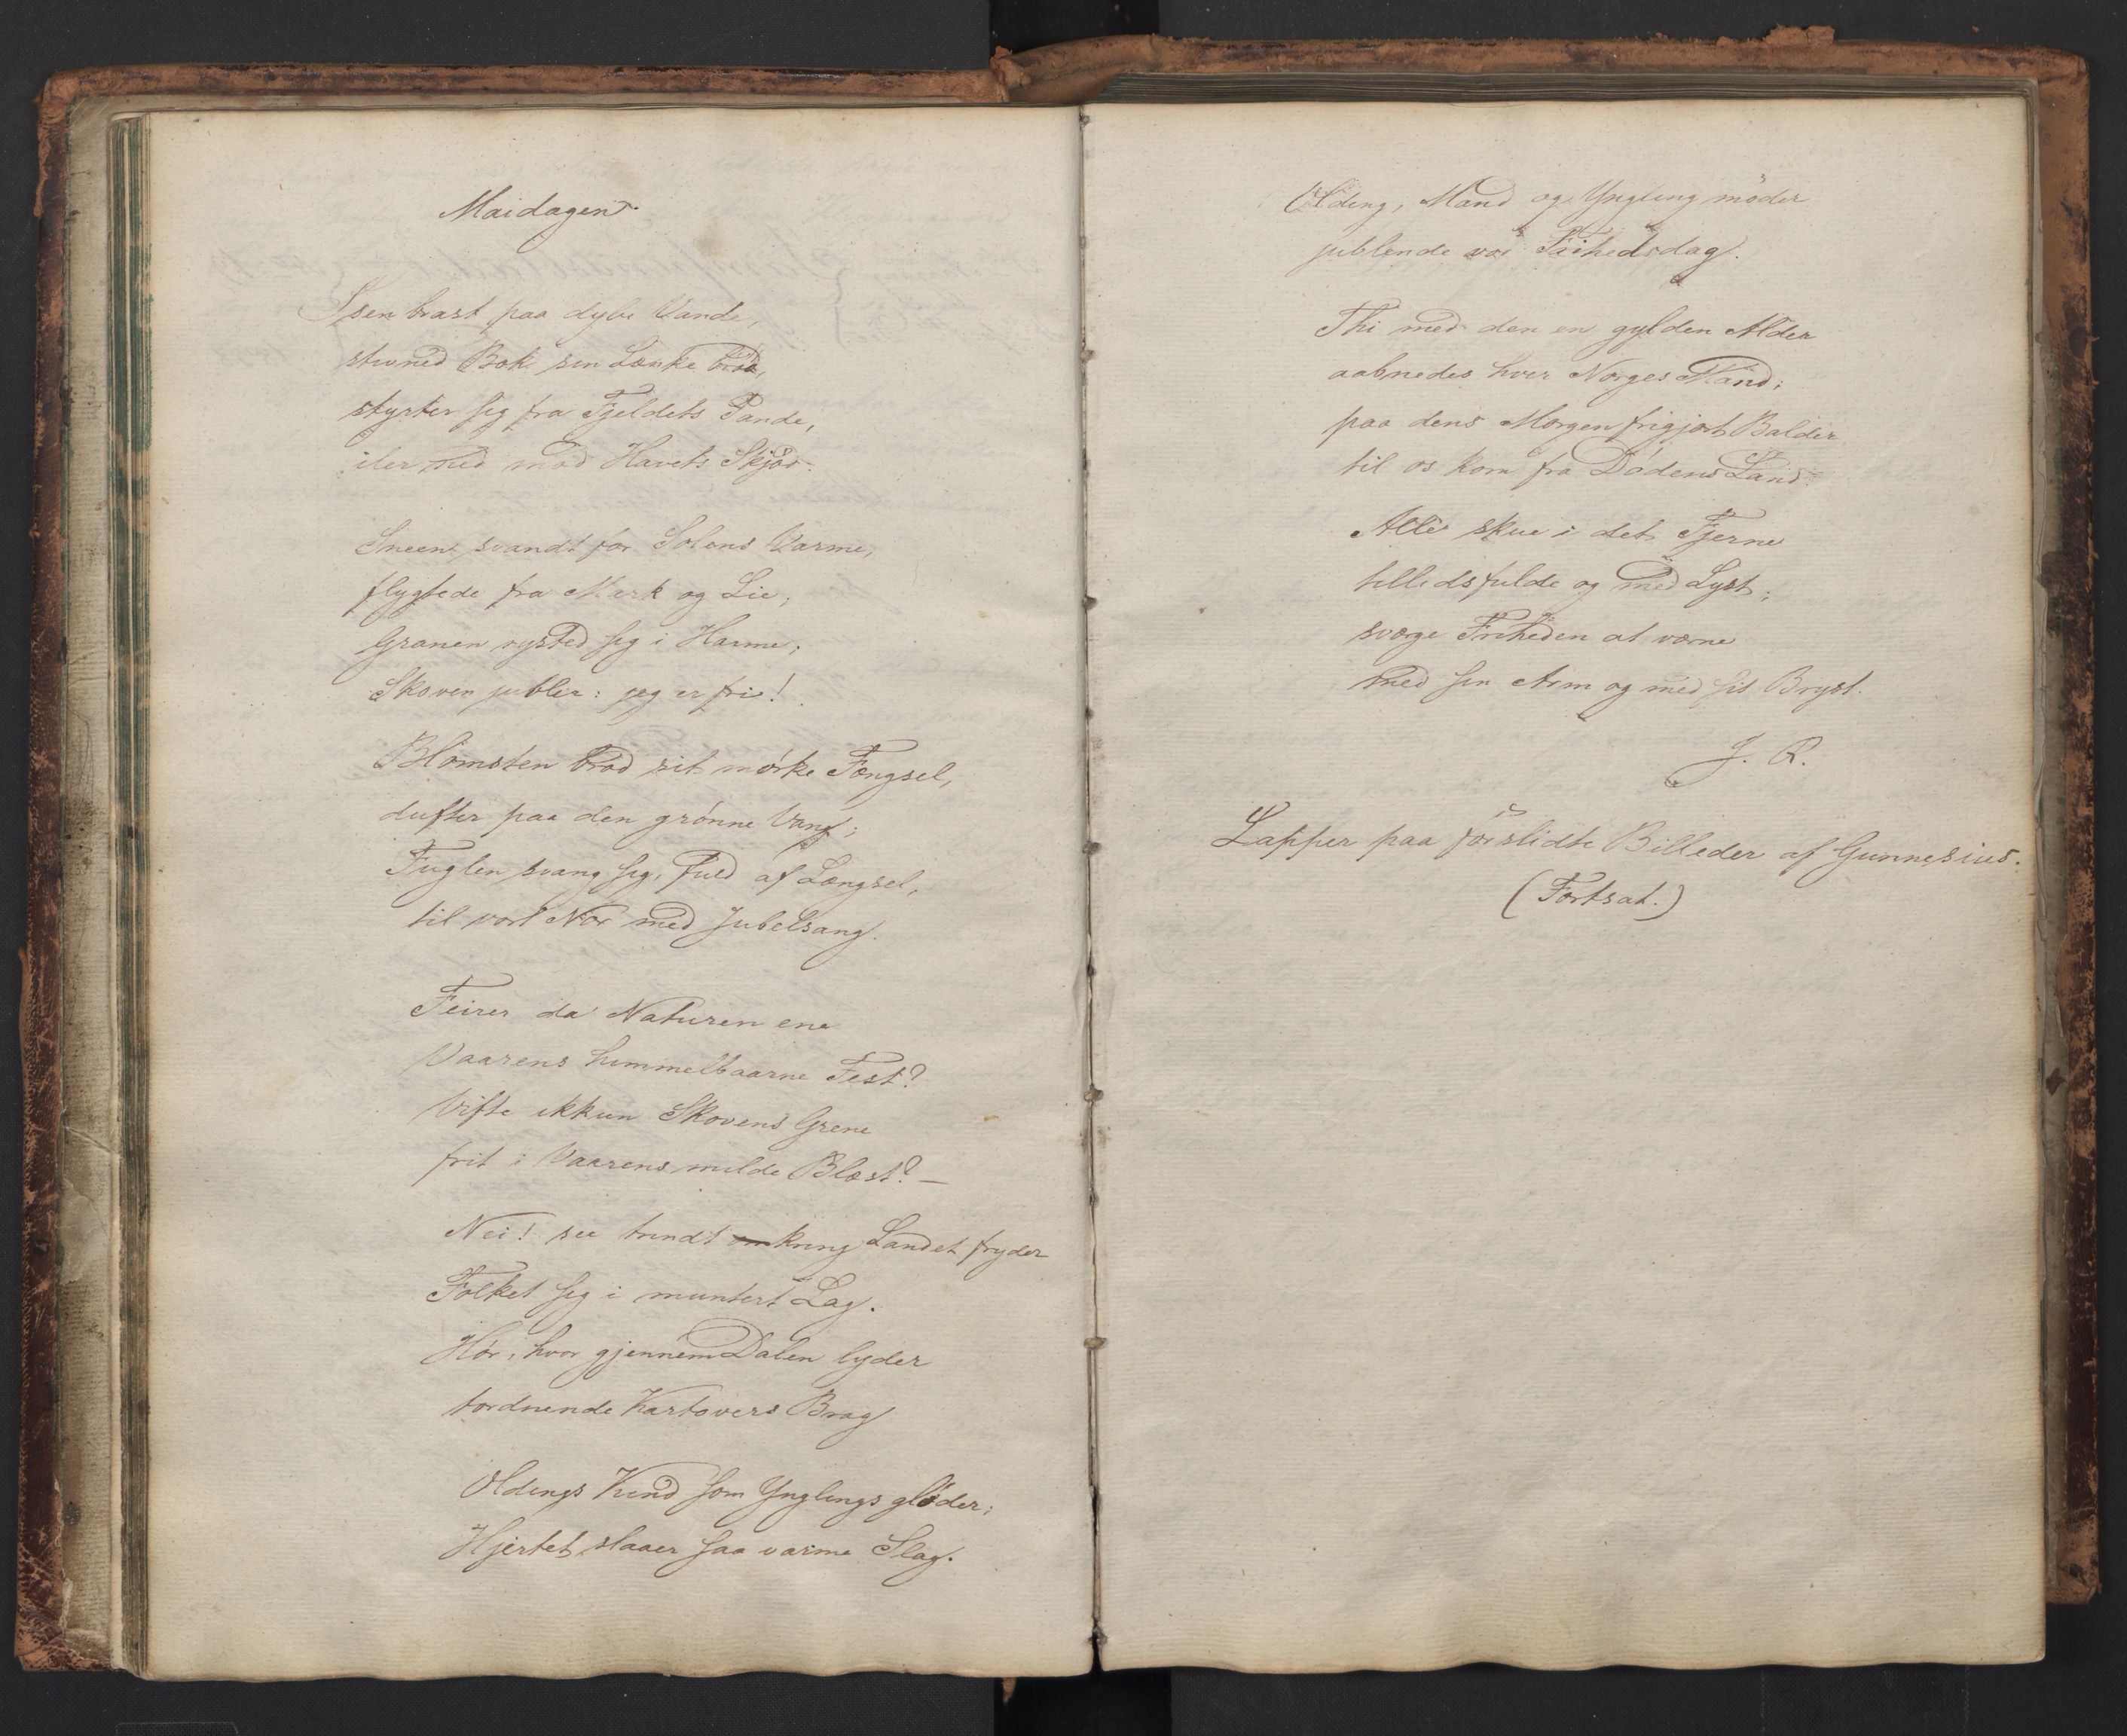 Maidagen.
Isen brast paa dybe Vande,
stivned Bæk sin Lænke brød,
styrter sig fra Fjeldets Pande,
iler ned mod Havets Skjød.
Sneen svandt for Solens Varme,
flygtede fra Mark og Lie;
Granen rysted sig i Harme;
Skoven jubler: jeg er fri!
Blomsten brød sit mørke Fængsel,
dufter paa den grønne Vang;
Fuglen svang sig, fuld af Længsel,
til vort Nor med Jubelsang.
Feirer da Naturen ene
Vaarens himmelbaarne Fest?
Vifte ikkun Skovens Grene
frit i Vaarens milde Blæst? —
Nei! see trindt omkring Landet fryder
Folket sig i muntert Lag.
Hør, hvor gjennem Dalen lyder
tordnende Kartovers Brag
Oldings Kind som Ynglings gløder;
Hjertet slaaer saa varme Slag.
Olding, Mand og Yngling møder
jublende vor Frihedsdag.
Thi med den en gylden Alder
aabnedes hver Norges Mand;
paa dens Morgen frigjort Balder
til os kom fra Dødens Land.
Alle skue i det Fjerne
tillidsfulde og med Lyst;
sværge Friheden at værne
med sin Arm og med sit Bryst.
J. R.
Lapper paa forslidte Billeder af Gunnesius.
(Fortsat.)